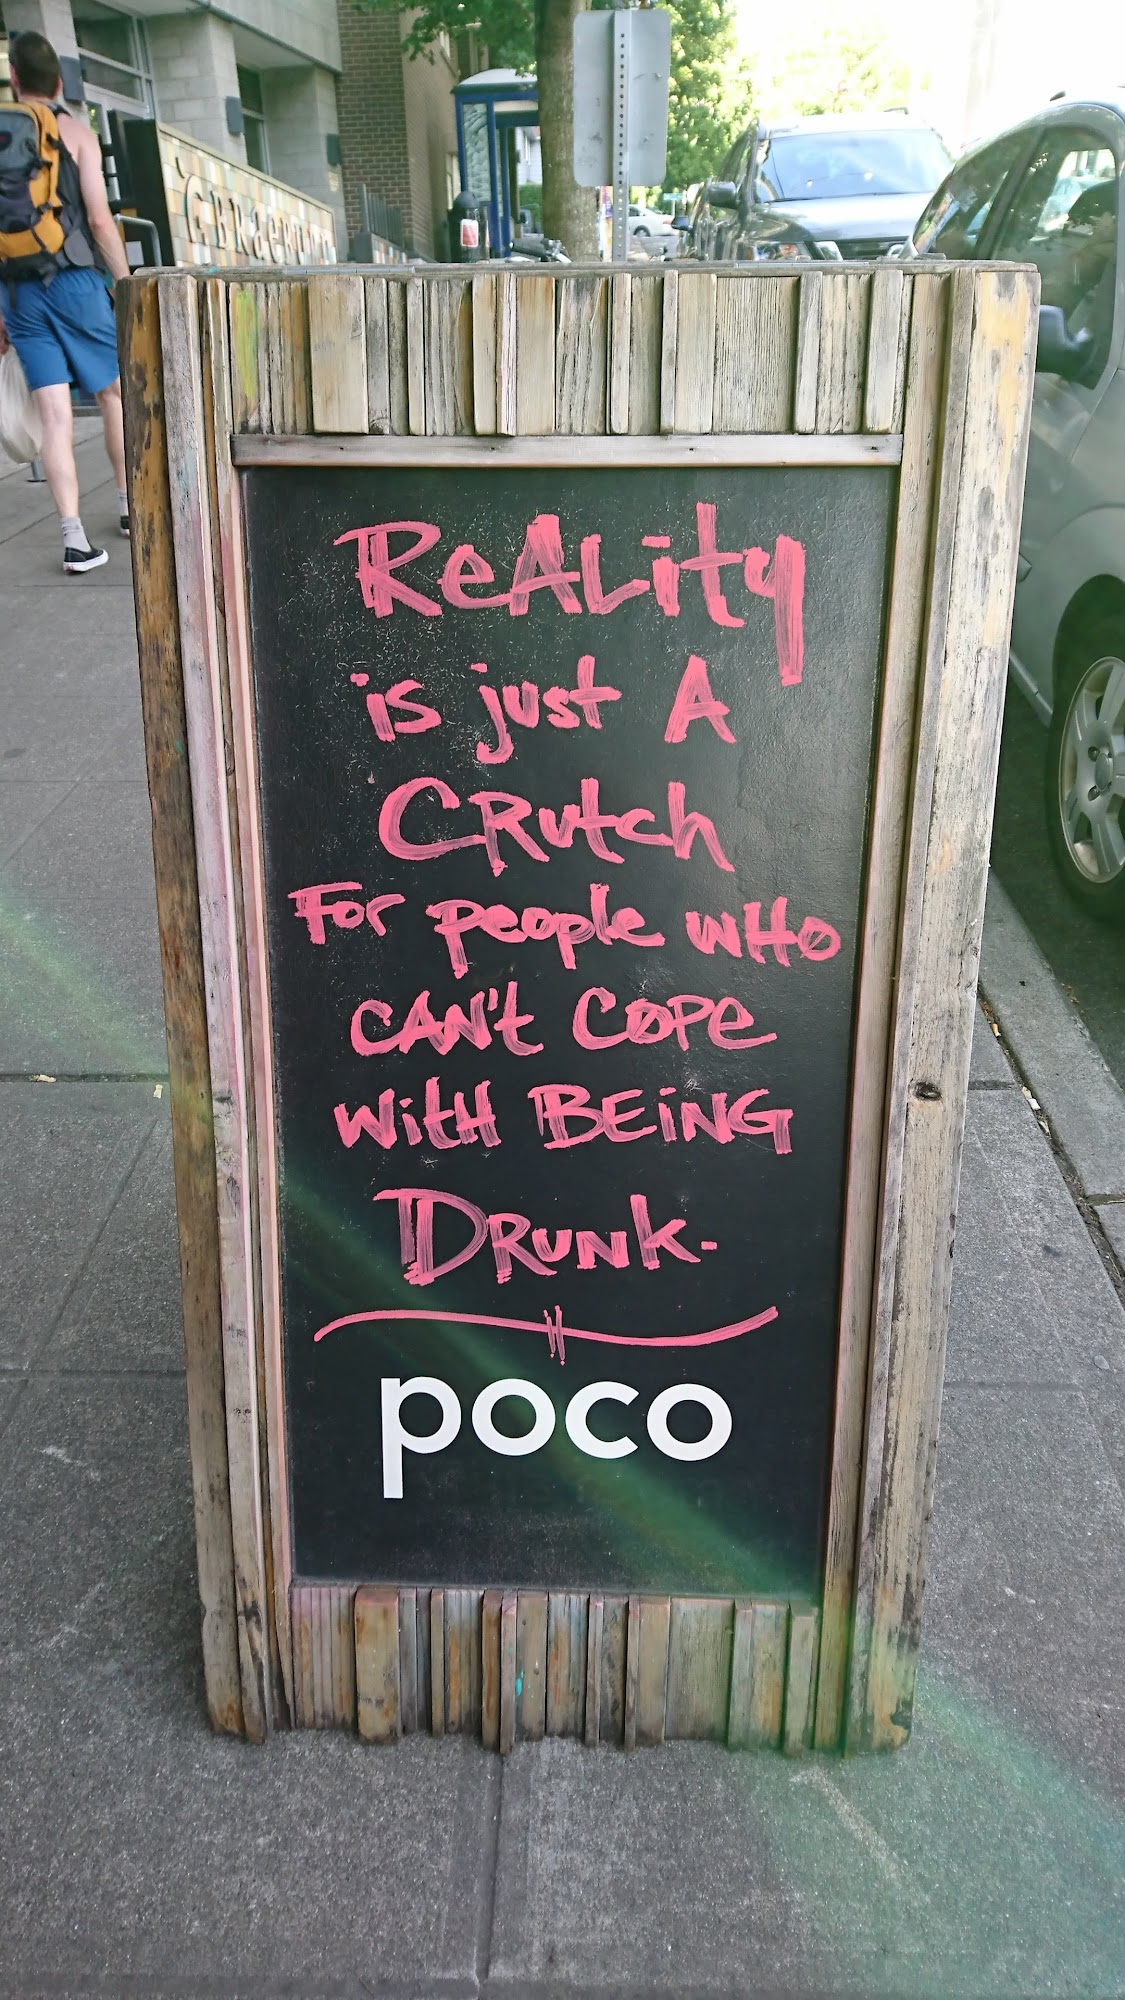 ReALity
is just A
CRutch
For people wHo
CAN't COPe
WitH BEiNG
DRuNk.
poco